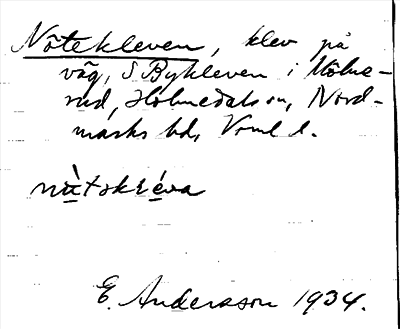 Nötekleven, klev på
väg, S Bykleven i Mölne-
rud, Holmedals sn, Nord-
marks hd, Vrml l.
nù̲təkléva
E. Andersson 1934.